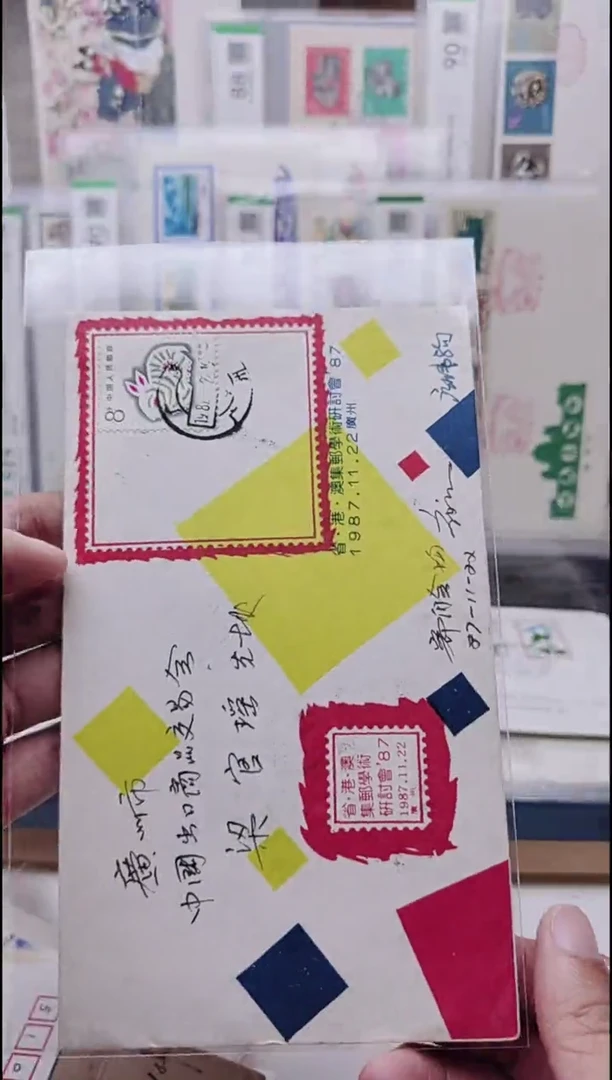 中国人民邮政
8分
省·港·澳集郵學術研討會'87
1987.11.22廣州
廣州市
中國出口商品交易会
梁官瑶先生收
省·港·澳
集郵學術
研討會'87
1987.11.22
廣州
87-11-22
88
90